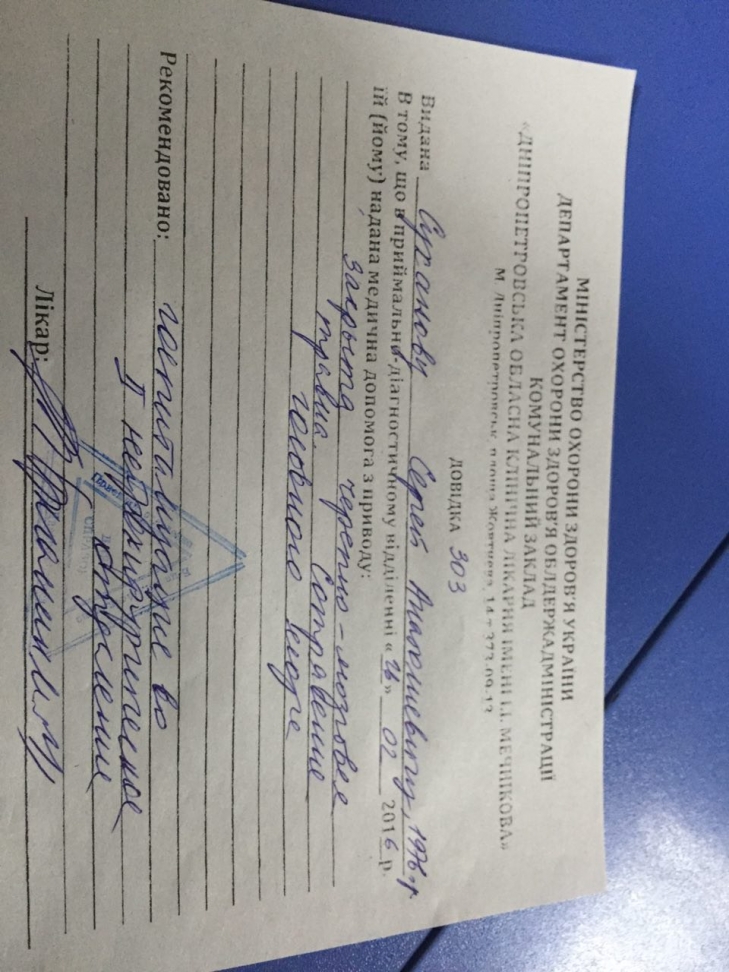 МІНІСТЕРСТВО ОХОРОНИ ЗДОРОВ'Я УКРАЇНИ
ДЕПАРТАМЕНТ ОХОРОНИ ЗДОРОВ'Я ОБЛДЕРЖАДМІНІСТРАЦІЇ
КОМУНАЛЬНИЙ ЗАКЛАД
«ДНІПРОПЕТРОВСЬКА ОБЛАСНА КЛІНІЧНА ЛІКАРНЯ ІМЕНІ І.І. МЕЧНІКОВА»
м. Дніпропетровськ, площа Жовтнева, 14 т 373-09-13
ДОВІДКА 303
Видана Сергей 1976 г.
В тому, що в приймально-діагностичному відділенні «26» 02 2016 р.
їй (йому) надана медична допомога з приводу:
закрыта черепно-мозговая
травма. Сотрясение
головного мозга
Рекомендовано: во
II нейрохирургическое
отделение
Лікар: